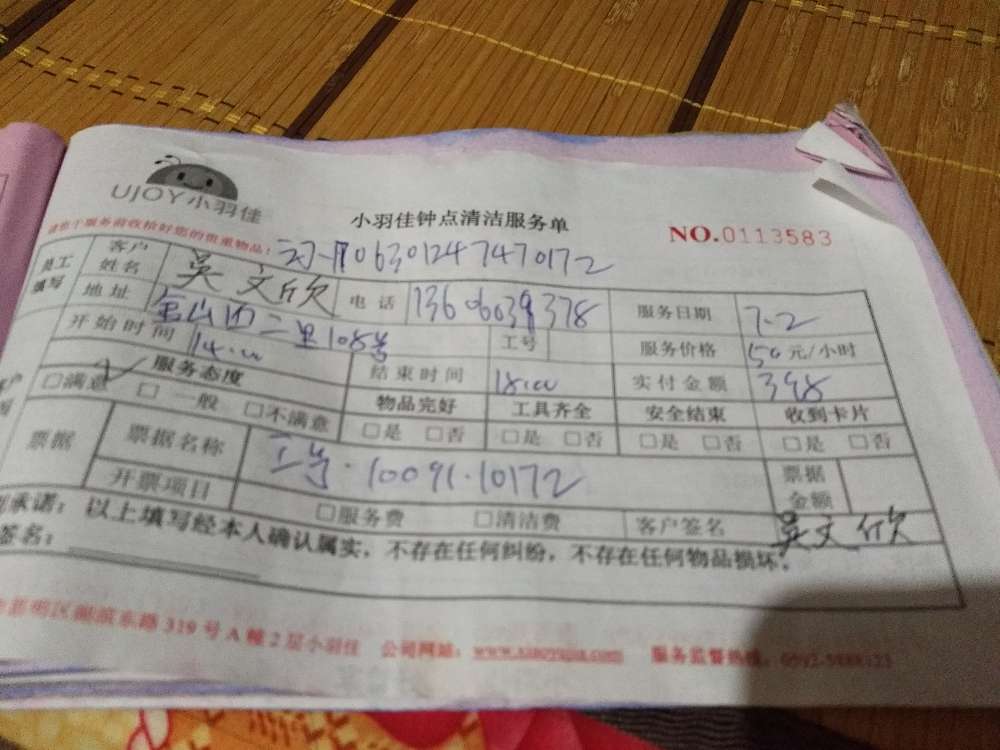 UJOY小羽佳
小羽佳钟点清洁服务单
NO.0113583
请您于服务前收拾好您的贵重物品: 06301247470172
员工填写 客户姓名 吴文欣 电话 13606039378 服务日期 7.2
地址 金山西二里108号 工号 服务价格 50元/小时
开始时间 14.00 结束时间 18.00 实付金额 398
服务态度 物品完好 工具齐全 安全结束 收到卡片
□满意 □一般 □不满意 □是 □否 □是 □否 □是 □否 □是 □否
票据 票据名称 工号·10091·10172 票据金额
开票项目 □服务费 □清洁费 客户签名 吴文欣
承诺: 以上填写经本人确认属实,不存在任何纠纷,不存在任何物品损坏。
签名:
明区湖滨东路319号A幢2层小羽佳 公司网站: 服务监督热线: